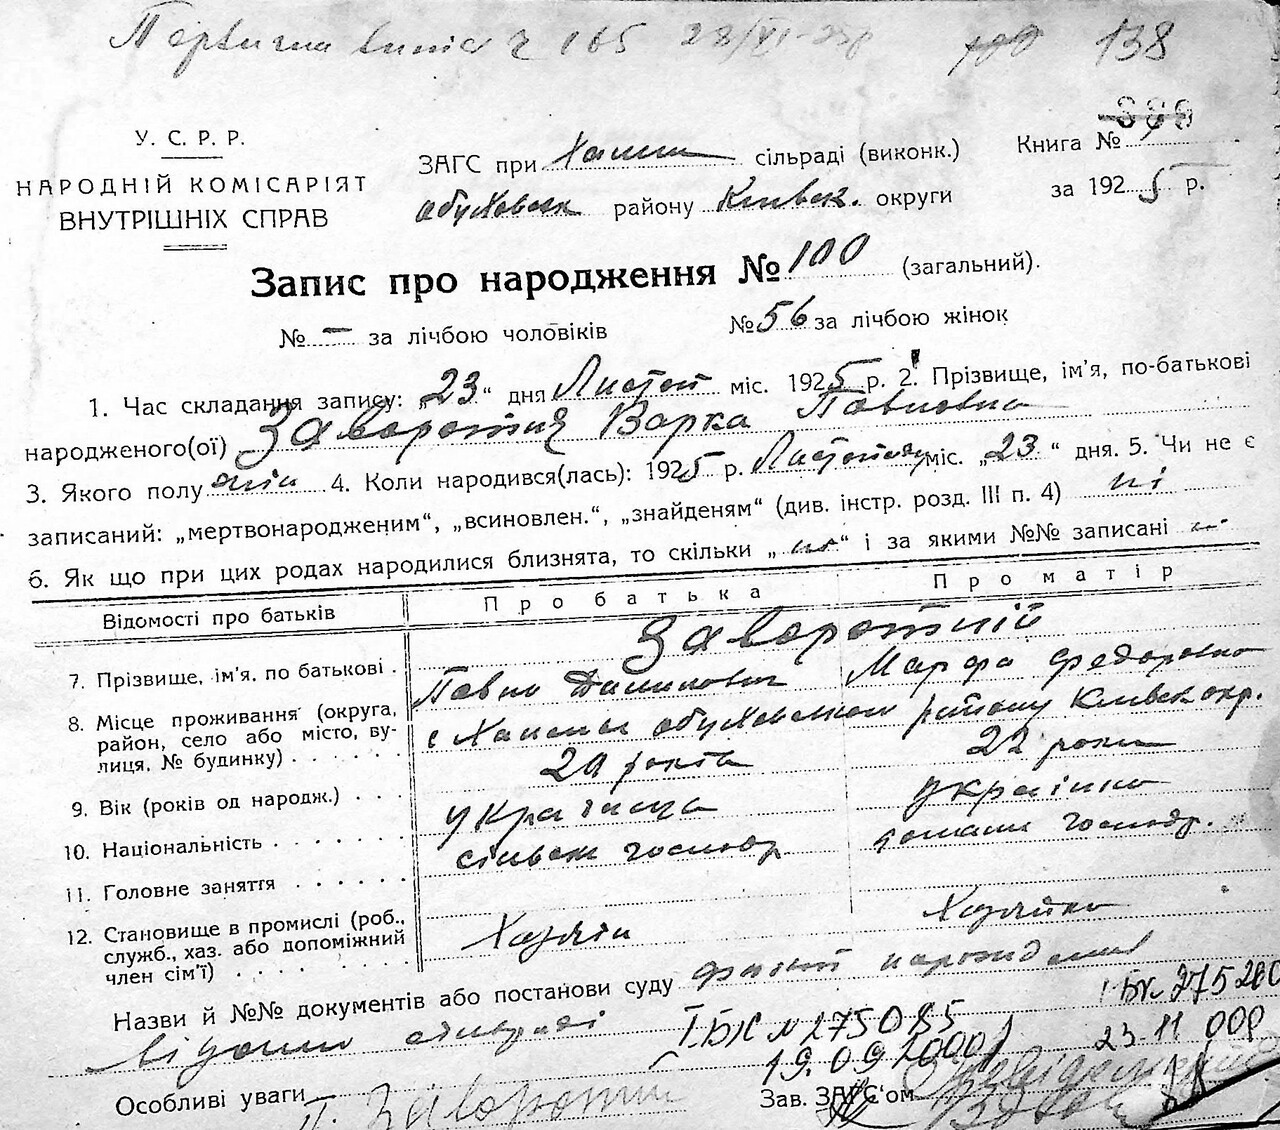 165 138
У. С. Р. Р.
НАРОДНІЙ КОМІСАРІЯТ
ВНУТРІШНІХ СПРАВ
ЗАГС при сільраді (виконк.)
Обуховськ району Київск. округи
Книга №
за 1925 р.
Запис про народження № 100 (загальний).
№ – за лічбою чоловіків № 56 за лічбою жінок
1. Час складання запису: „23“ дня Листоп міс. 1925 р. 2. Прізвище, ім'я, по-батькові
народженого(ої) Заворотня Варка Павловна
3. Якого полу жін 4. Коли народився(лась): 1925 р. Листопаду міс. „23“ дня. 5. Чи не є
записаний: „мертвонародженим“, „всиновлен.“, „знайденям“ (див. інстр. розд. III п. 4) ні
6. Як що при цих родах народилися близнята, то скільки „ні“ і за якими №№ записані
Відомості про батьків Про батька Про матір
7. Прізвище, ім'я, по батькові. Заворотній
Павло Данилович Марфа Федоровна
8. Місце проживання (округа, район, село або місто, вулиця, № будинку) с Обуховського району Київск окр.
9. Вік (років од народж.) 29 років 22 роки
10. Національність українець українка
11. Головне заняття сільськ господр домашн господр.
12. Становище в промислі (роб., служб., хаз. або допоміжний член сім'ї) Хазяїн Хазяйка
Назви й №№ документів або постанови суду народження
сільраді І БК № 275085 І БК 275200
19.09.2000 23 11 000
Особливі уваги П. Заворотній Зав. ЗАГС'ом